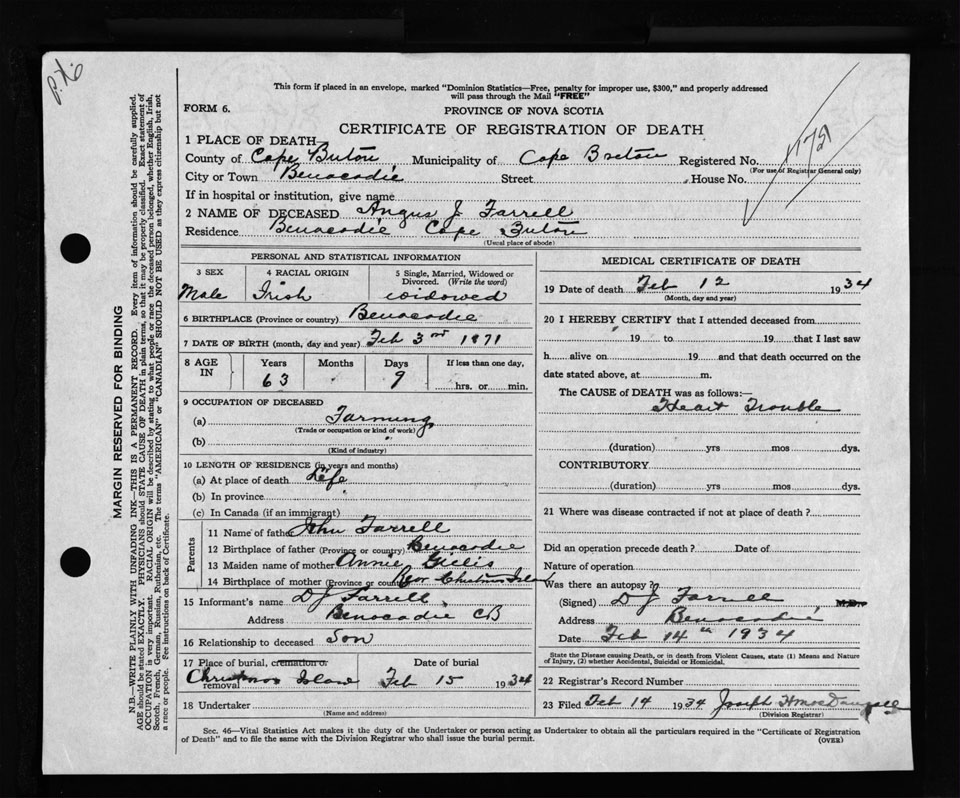 P.X.
This form if placed in an envelope, marked "Dominion Statistics—Free, penalty for improper use, $300," and properly addressed
will pass through the Mail "FREE"
FORM 6.
PROVINCE OF NOVA SCOTIA
CERTIFICATE OF REGISTRATION OF DEATH
1 PLACE OF DEATH—
County of Cape Breton, Municipality of Cape Breton Registered No.
(For use of Registrar General only)
City or Town Benacadie Street House No.
If in hospital or institution, give name
2 NAME OF DECEASED Angus J Farrell
Residence Benacadie Cape Breton
(Usual place of abode)
PERSONAL AND STATISTICAL INFORMATION
3 SEX 4 RACIAL ORIGIN 5 Single, Married, Widowed or
Divorced. (Write the word)
Male Irish widowed
6 BIRTHPLACE (Province or country) Benacadie
7 DATE OF BIRTH (month, day and year) Feb 3rd 1871
8 AGE IN Years Months Days If less than one day,
63 9 hrs. or min.
9 OCCUPATION OF DECEASED
(a) Farming
(Trade or occupation or kind of work)
(b)
(Kind of industry)
10 LENGTH OF RESIDENCE (in years and months)
(a) At place of death Life
(b) In province
(c) In Canada (if an immigrant)
Parents
11 Name of father John Farrell
12 Birthplace of father (Province or country) Benacadie
13 Maiden name of mother Annie Gillis
14 Birthplace of mother (Province or country) Rear Christmas Island
15 Informant's name D J Farrell
Address Benacadie CB
16 Relationship to deceased Son
17 Place of burial, cremation or Date of burial
removal Christmas Island Feb 15 1934
18 Undertaker
(Name and address)
MEDICAL CERTIFICATE OF DEATH
19 Date of death Feb 12 1934
(Month, day and year)
20 I HEREBY CERTIFY that I attended deceased from
19 to 19 that I last saw
h alive on 19 and that death occurred on the
date stated above, at m.
The CAUSE of DEATH was as follows:—
Heart Trouble
(duration) yrs mos dys.
CONTRIBUTORY
(duration) yrs mos dys.
21 Where was disease contracted if not at place of death?
Did an operation precede death? Date of
Nature of operation
Was there an autopsy?
(Signed) D J Farrell M.D.
Address Benacadie
Date Feb 14th 1934
State the Disease causing Death, or in death from Violent Causes, state (1) Means and Nature
of Injury, (2) whether Accidental, Suicidal or Homicidal.
22 Registrar's Record Number
23 Filed Feb 14 1934 Joseph H MacDougall
(Division Registrar)
Sec. 46—Vital Statistics Act makes it the duty of the Undertaker or person acting as Undertaker to obtain all the particulars required in the "Certificate of Registration
of Death" and to file the same with the Division Registrar who shall issue the burial permit.
(OVER)
MARGIN RESERVED FOR BINDING
N.B.—WRITE PLAINLY WITH UNFADING INK—THIS IS A PERMANENT RECORD. Every item of information should be carefully supplied.
AGE should be stated EXACTLY. PHYSICIANS should STATE CAUSE OF DEATH in plain terms, so that it may be properly classified. Exact statement of
OCCUPATION is very important. RACIAL ORIGIN will be described by stating to what people or race the deceased person belonged, whether English, Irish,
Scotch, French, German, Russian, Ruthenian, etc. The terms "AMERICAN" or "CANADIAN" SHOULD NOT BE USED as they express citizenship but not
a race or people. Fee instructions on back of Certificate.